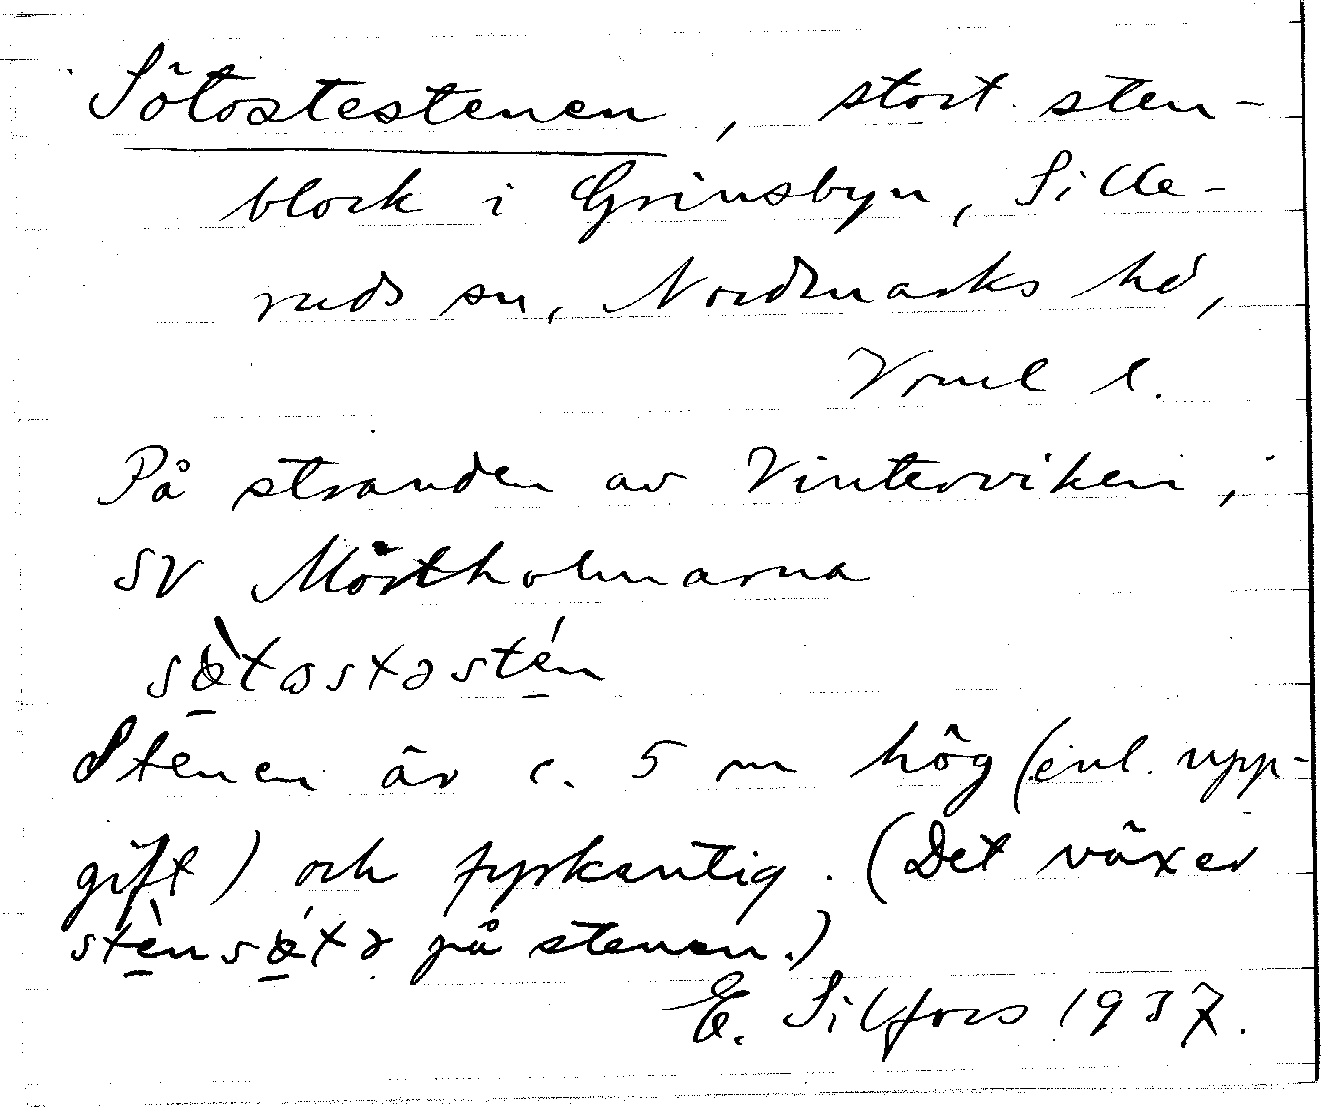 Sötostestenen, stort sten-
block i Grinsbyn, Sille-
ruds sn, Nordmarks hd,
Vrml l.
På stranden av Vinterviken,
SV Mörtholmarna
Stenen är c. 5 m hög (enl. upp-
gift) och fyrkantig. (Det växer
på stenen.)
E. Silfors 1937.